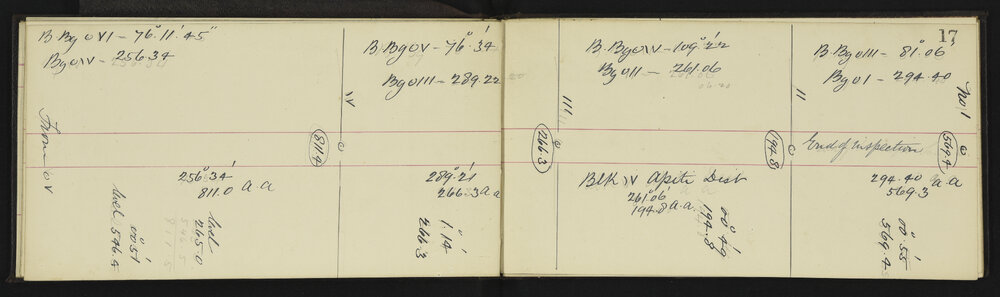 B. Bg o VI - 76° 11' 45"
Bg o IV - 256.34
From o V
811.4
256° 34'
811.0 a.a
level 546.4
00° 51'
level 265.0
B. Bg o V - 76° 34'
Bg o III - 289.22
IV
289° 21'
266.3 a.a
1° 14'
266.3
266.3
B. Bg o IV - 109° 22'
Bg o II - 261.06
III
Blk IV Apiti Dist
261° 06'
194.8 a.a.
00° 49'
194.8
194.8
17
B. Bg o III - 81° 06'
Bg o I - 294.40
II
No 1
End of Inspection
569.4
294.40 a.a
569.3
00° 55'
569.4